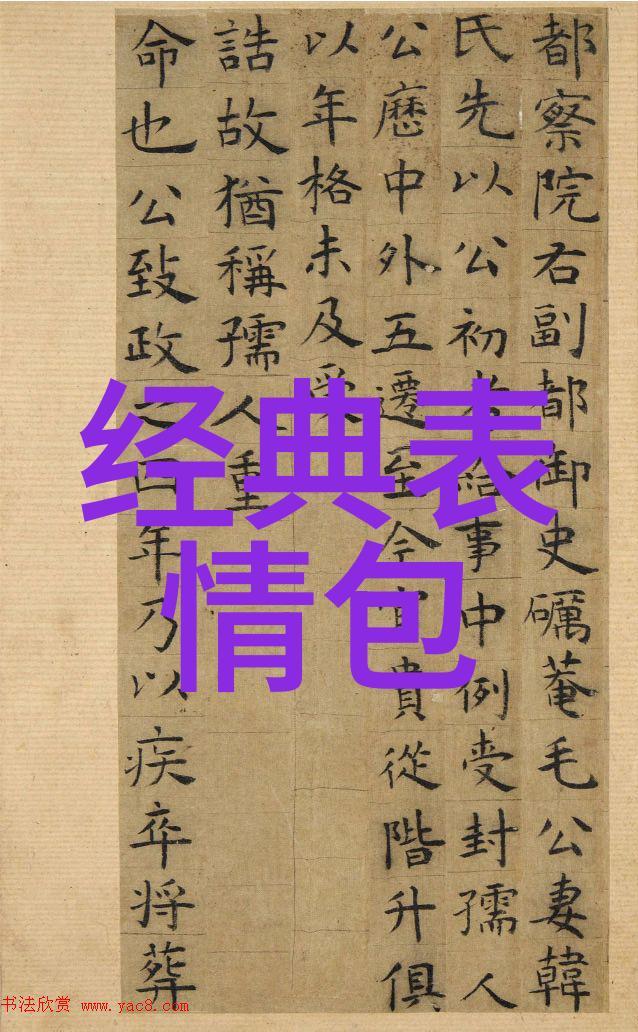 都察院右副都御史礪菴毛公妻韓
氏先以公初考給事中例受封孺人
公歷中外五遷至今官貴從階升俱
以年格未及受
誥故猶稱孺人重
命也公致政之四年乃以疾卒將葬
经典表
情包
书法欣赏 www.yac8.com